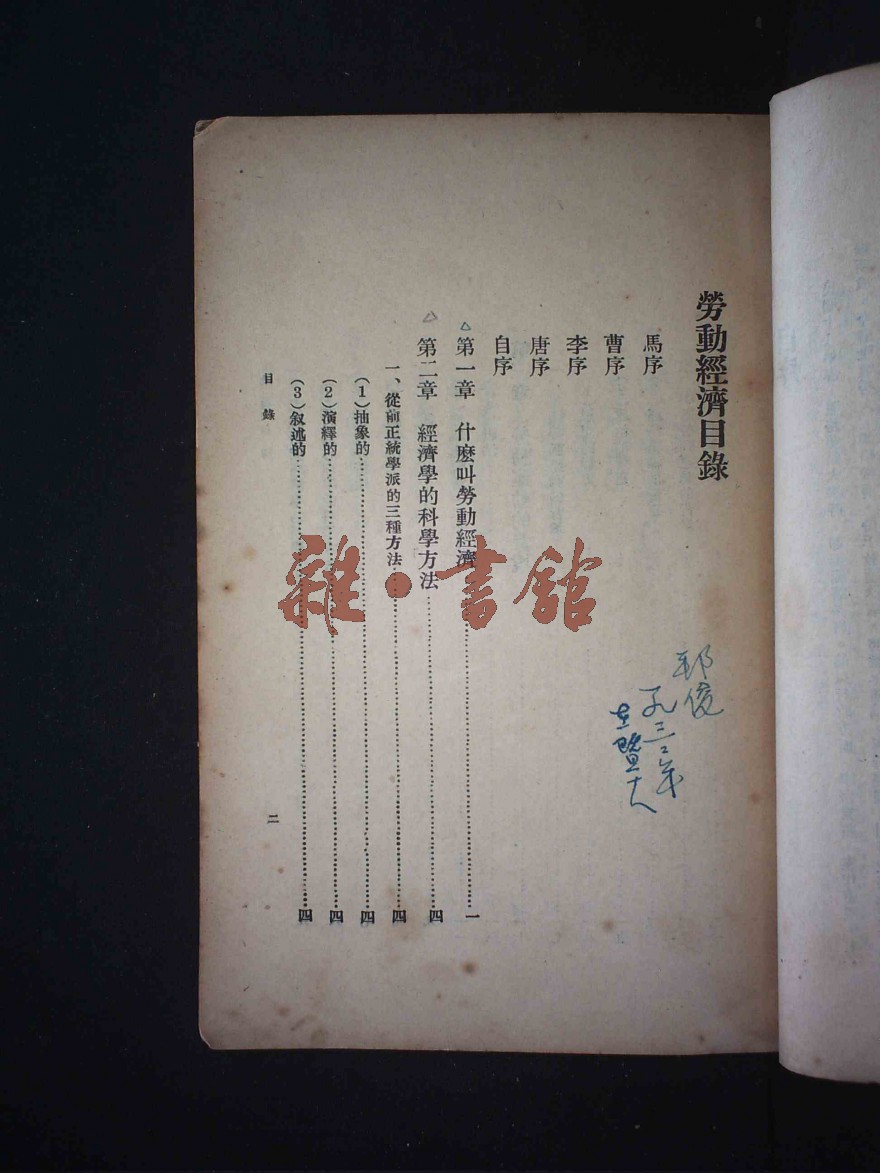 勞動經濟目錄
馬序
曹序
李序
唐序
自序
△第一章　什麼叫勞動經濟………………一
△第二章　經濟學的科學方法………………四
一、從前正統學派的三種方法………………四
（1）抽象的………………四
（2）演繹的………………四
（3）叙述的………………四
目錄
二
三三年
雜·書館